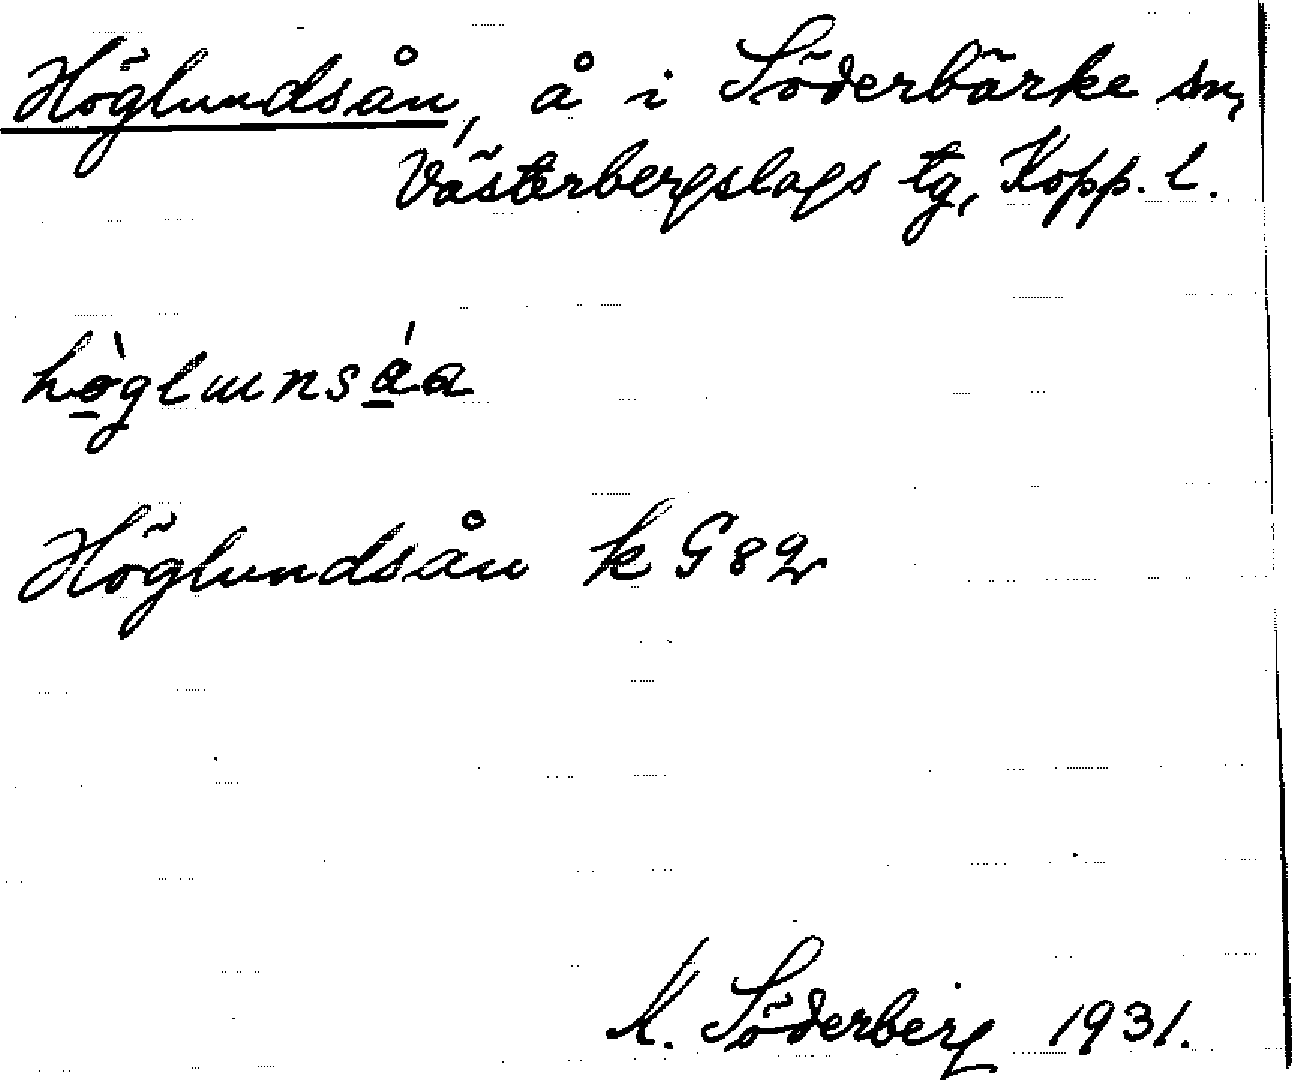 Höglundsån, å i Söderbärke sn,
Västerbergslags tg, Kopp. l.
hö̀glumnsáa
Höglundsån k G 82
K. Söderberg 1931.